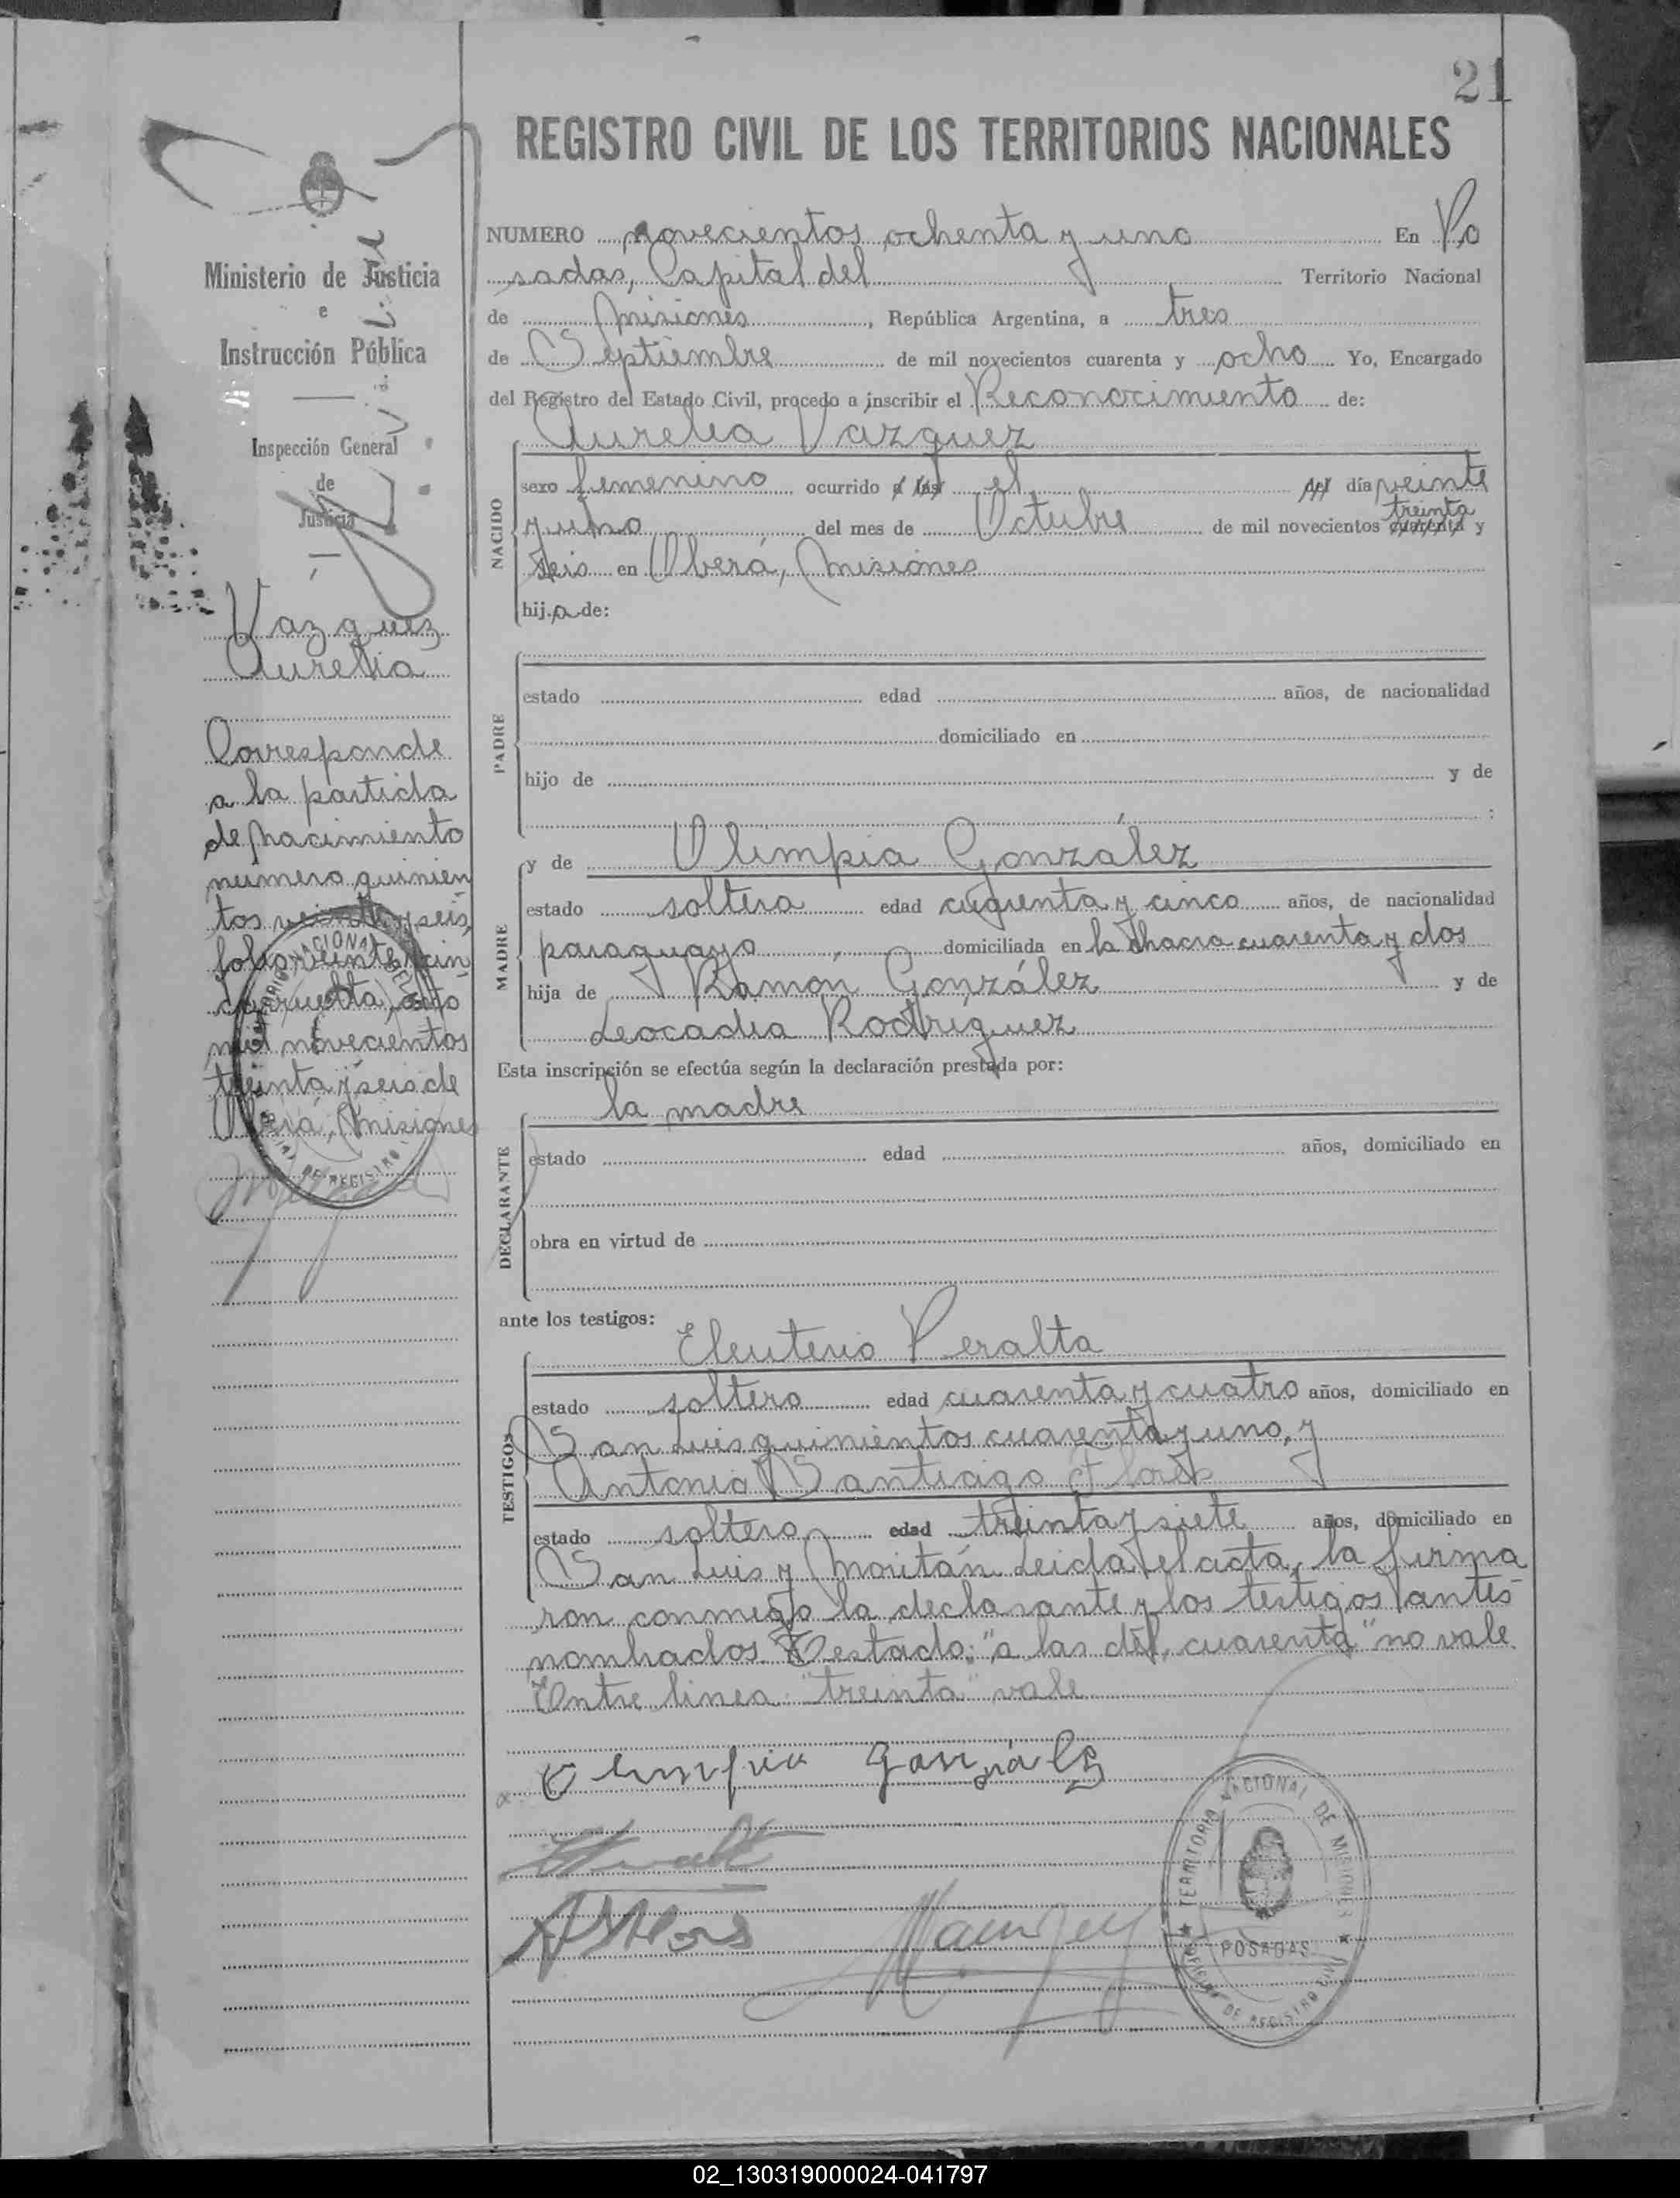 21
REGISTRO CIVIL DE LOS TERRITORIOS NACIONALES
Ministerio de Justicia
e
Instrucción Pública
Inspección General
de
Justicia
Vazquez
Aurelia
Corresponde
a la partida
de nacimiento
numero quinien
tos veinte y seis,
folio veinte, cin
cuenta, año
mil novecientos
treinta y seis de
Oberá, Misiones
NUMERO novecientos ochenta y uno En Po
sadas, Capital del Territorio Nacional
de Misiones, República Argentina, a tres
de Septiembre de mil novecientos cuarenta y ocho Yo, Encargado
del Registro del Estado Civil, procedo a inscribir el Reconocimiento de:
Aurelia Vazquez
NACIDO
sexo femenino ocurrido a las el del día veinte
y uno del mes de Octubre de mil novecientos cuarenta treinta y
seis en Oberá, Misiones
hija de:
PADRE
estado edad años, de nacionalidad
domiciliado en
hijo de y de
:
MADRE
y de Olimpia González
estado soltera edad cuarenta y cinco años, de nacionalidad
paraguaya domiciliada en la chacra cuarenta y dos
hija de Ramón González y de
Leocadia Rodriguez
Esta inscripción se efectúa según la declaración prestada por:
DECLARANTE
la madre
estado edad años, domiciliado en
obra en virtud de
ante los testigos:
TESTIGOS
Eleuterio Peralta
estado soltero edad cuarenta y cuatro años, domiciliado en
San Luis quinientos cuarenta y uno, y
Antonio Santiago Flores
estado soltero edad treinta y siete años, domiciliado en
San Luis y Moritán Leida el acta, la firma
ron conmigo la declarante y los testigos antes
nombrados. Testado: "a las del, cuarenta" no vale.
Entre linea: "treinta" vale
Olimpia González
TERRITORIO NACIONAL DE MISIONES
POSADAS
DE REGISTRO CIVIL
02_130319000024-041797